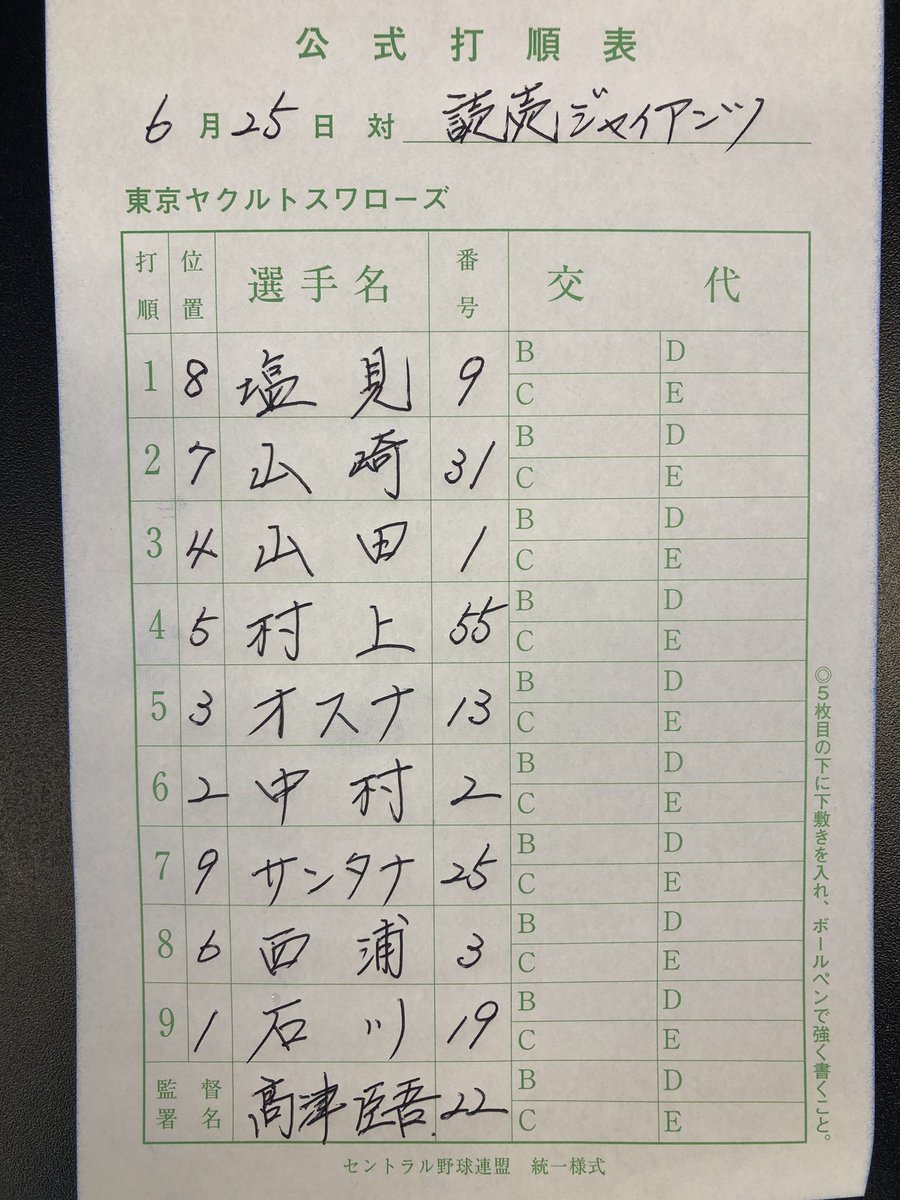 公式打順表
6月25日 対 読売ジャイアンツ
東京ヤクルトスワローズ
打順 位置 選手名 番号 交代
1 8 塩見 9 B D C E
2 7 山崎 31 B D C E
3 4 山田 1 B D C E
4 5 村上 55 B D C E
5 3 オスナ 13 B D C E
6 2 中村 2 B D C E
7 9 サンタナ 25 B D C E
8 6 西浦 3 B D C E
9 1 石川 19 B D C E
監督署名 高津臣吾 22 B D C E
◎5枚目の下に下敷きを入れ、ボールペンで強く書くこと。
セントラル野球連盟 統一様式